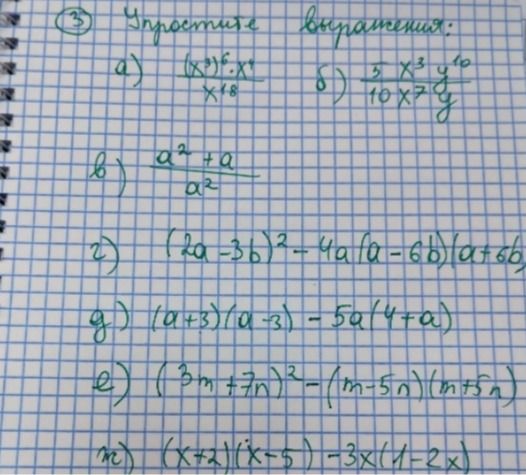 ③ Упростите выражения:
а) (x³)⁶·x⁴ / x¹⁸ б) 5 x³ y¹⁰ / 10 x⁷ y
в) a² + a / a²
г) (2a - 3b)² - 4a(a - 6b)(a + 6b)
д) (a+3)(a-3) - 5a(4+a)
е) (3m + 7n)² - (m - 5n)(m + 5n)
ж) (x+2)(x-5) - 3x(1-2x)